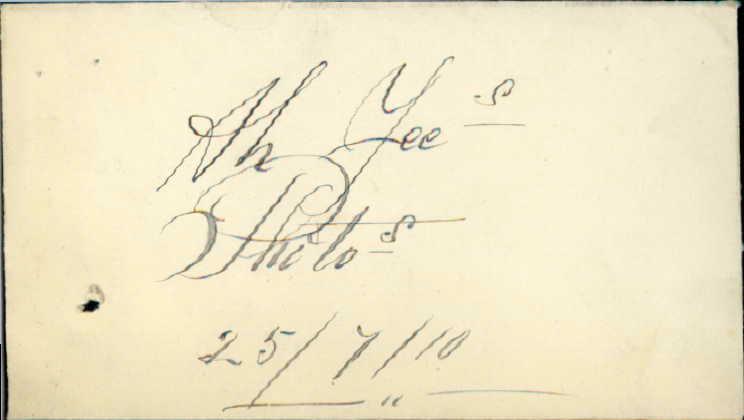 Ah Yee s
Photo s
25/7/10
"